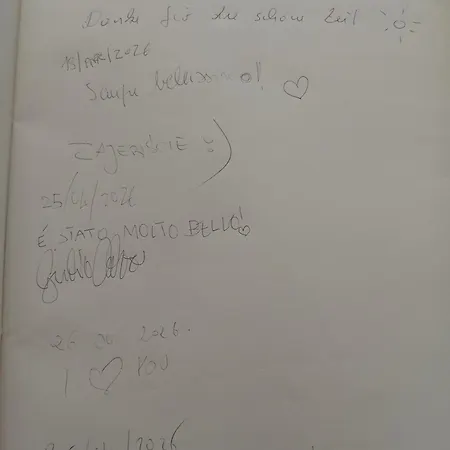 Danke für die schöne Zeit
18/MAR/2026
Sempre bellissimo!
ZAJEBIŚCIE :)
25/04/2026
É STATO MOLTO BELLO!
2026.
I ♡ YOU
/2026